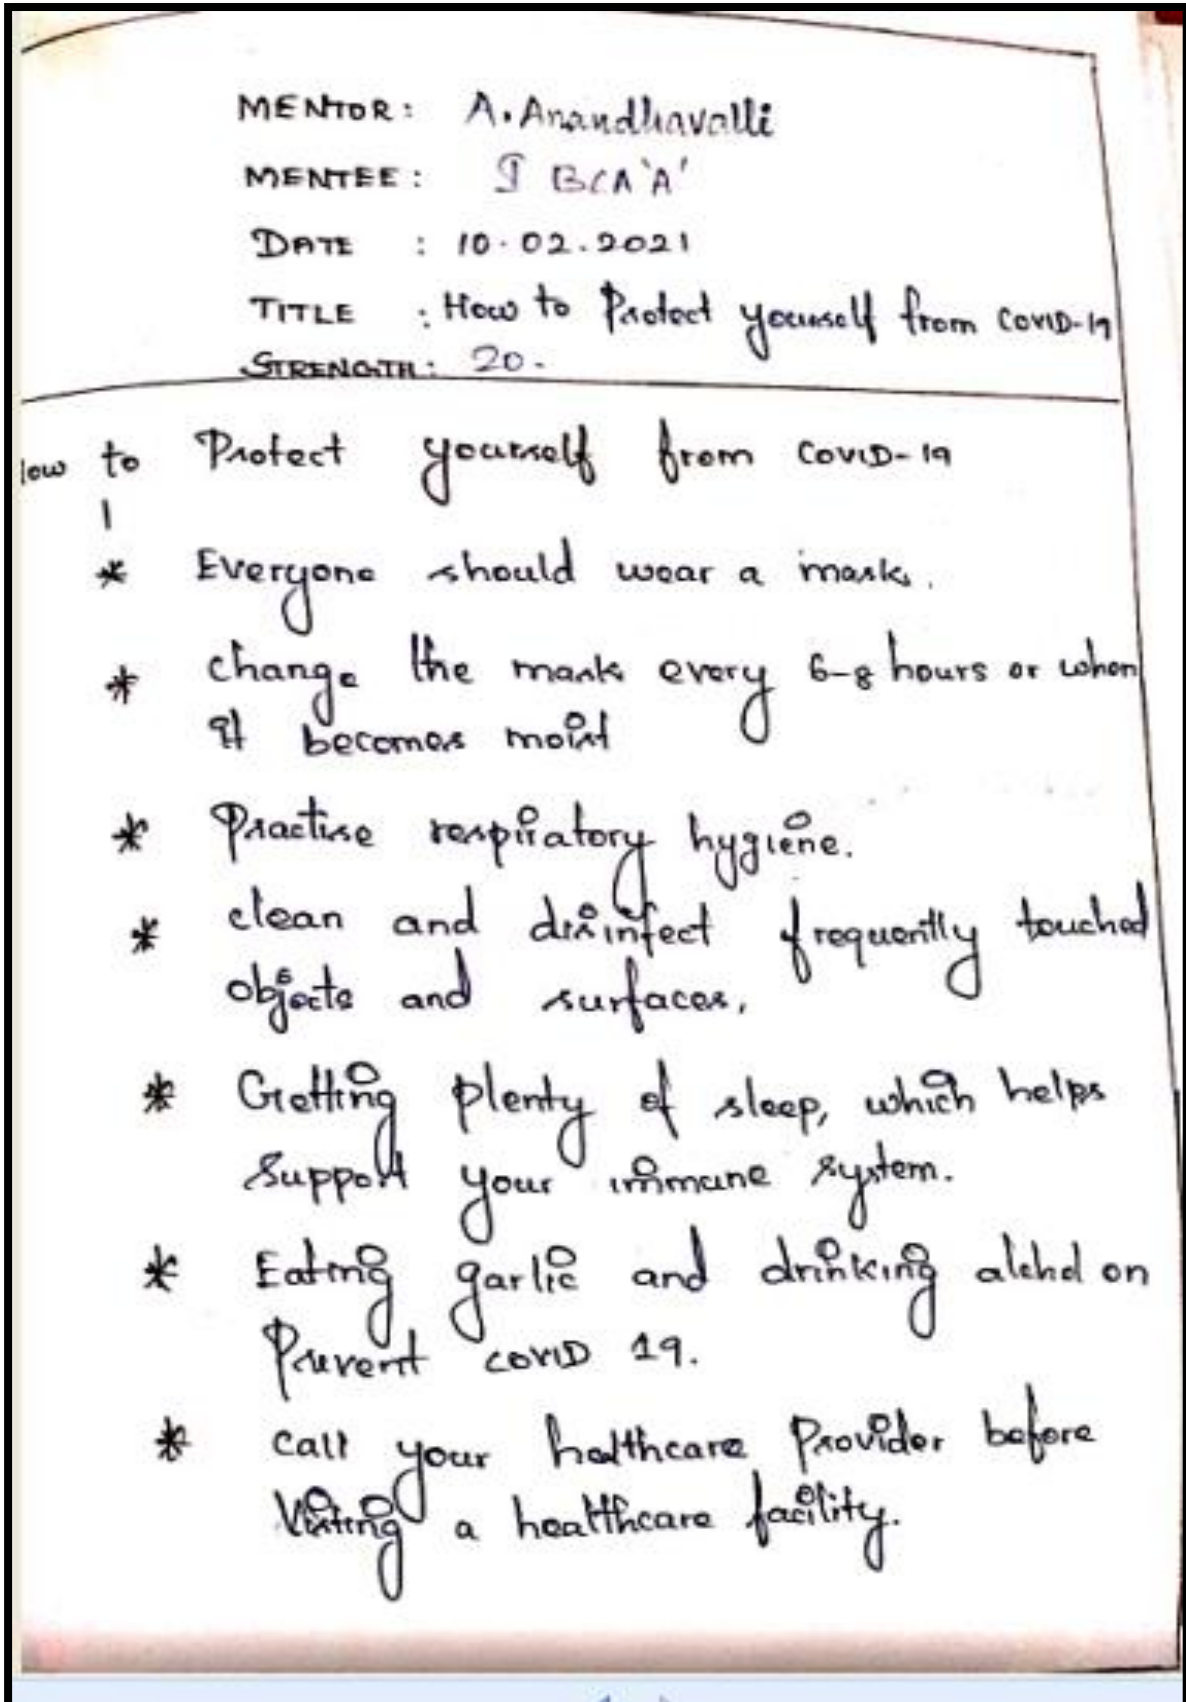 MENTOR: A. Anandhavalli
MENTEE: I BCA 'A'
DATE : 10.02.2021
TITLE : How to Protect yourself from COVID-19
STRENGTH: 20.
How to Protect yourself from COVID-19
* Everyone should wear a mask.
* change the mask every 6-8 hours or when
it becomes moist
* Practise respiratory hygiene.
* clean and disinfect frequently touched
objects and surfaces.
* Getting plenty of sleep, which helps
support your immune system.
* Eating garlic and drinking on
Prevent COVID 19.
* call your healthcare Provider before
Visiting a healthcare facility.